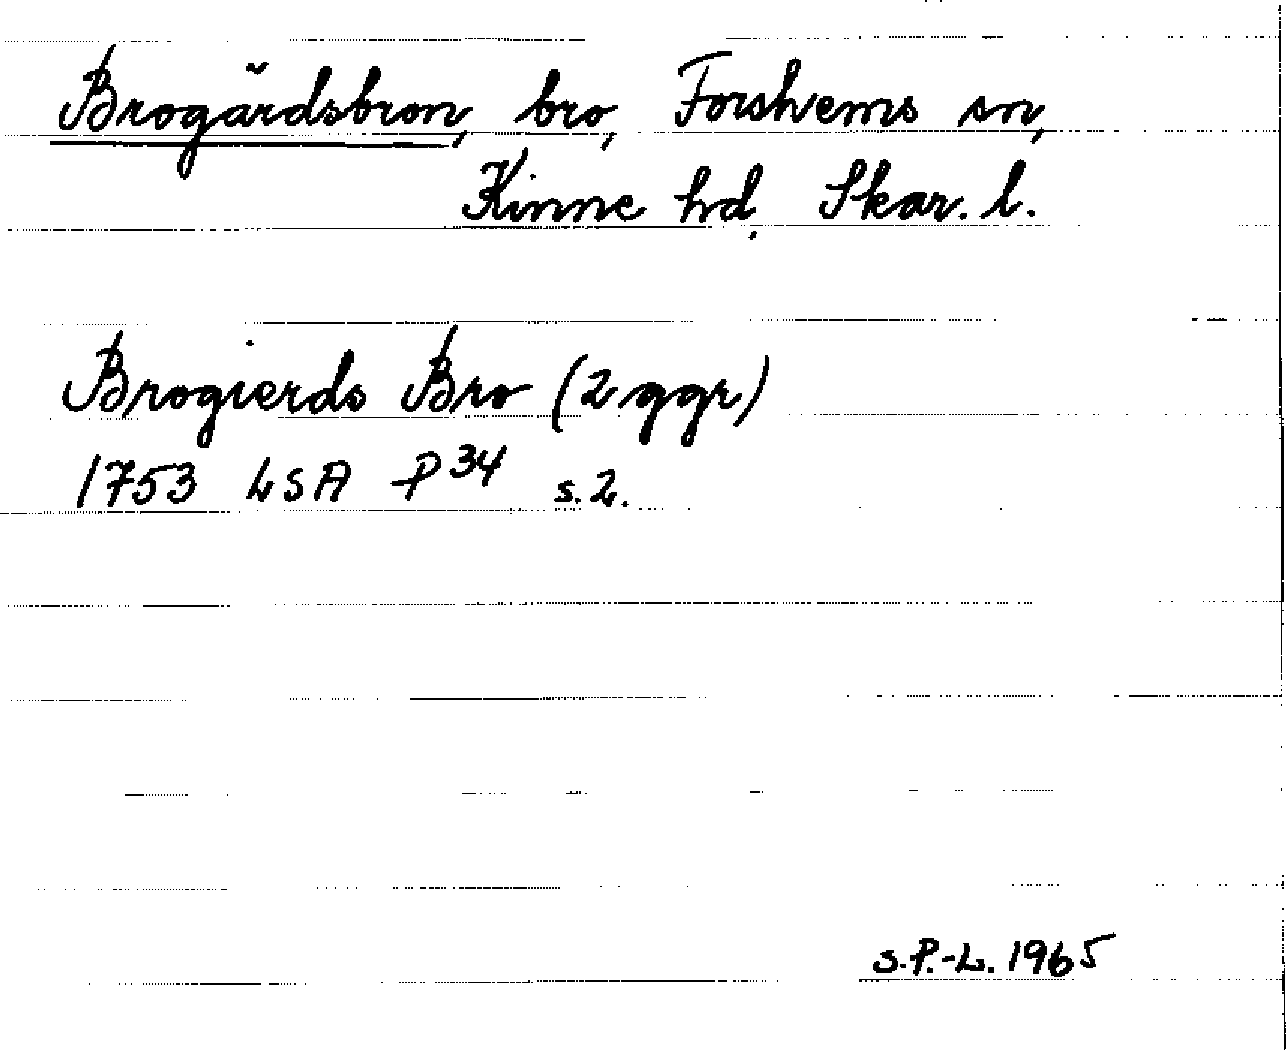 Brogärdsbron, bro, Forshems sn,
Kinne hd. Skar. l.
Brogierds Bro (2 ggr)
1753 LSA P 34 s. 2.
S.P.-L. 1965